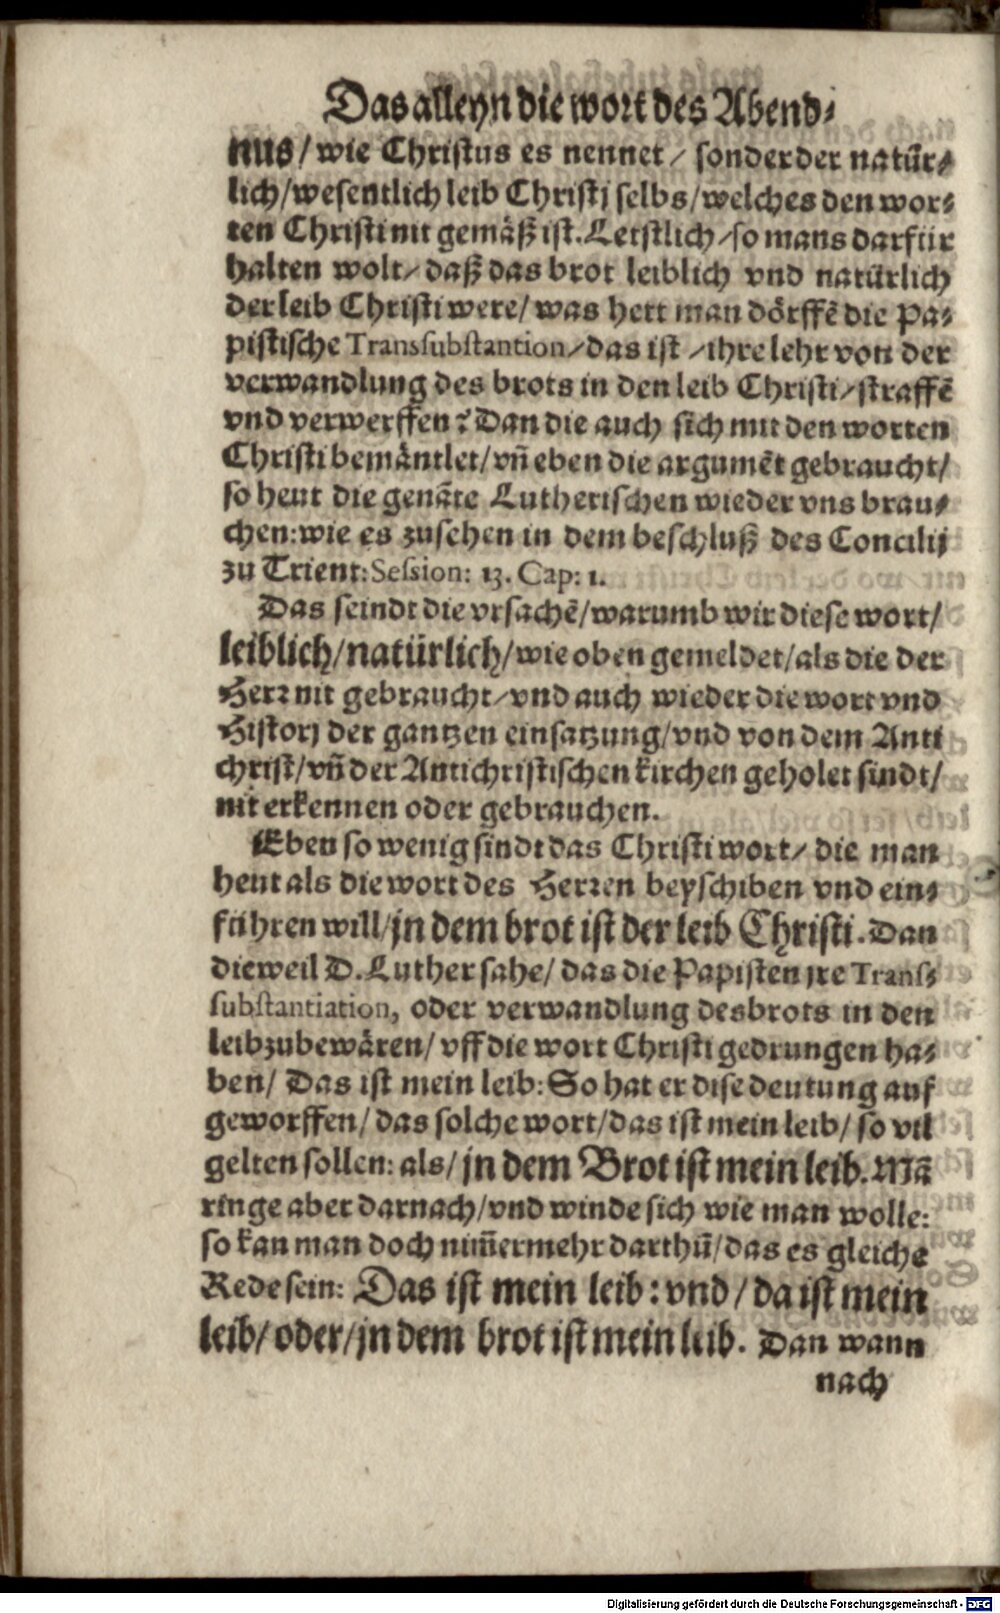 Das alleyn die wort des Abend⸗
nus/ wie Christus es nennet/ sonder der natür⸗
lich/ wesentlich leib Christj selbs/ welches den wor⸗
ten Christi nit gemäß ist. Letstlich/ so mans darfür
halten wolt/ daß das brot leiblich vnd natürlich
der leib Christi were/ was hett man dörffẽ die Pa⸗
pistische Transsubstantion/ das ist/ ihre lehr von der
verwandlung des brots in den leib Christi/ straffẽ
vnd verwerffen? Dan die auch sich mit den worten
Christi bemäntlet/ vñ eben die argumẽt gebraucht/
so heut die genãte Lutherischen wieder vns brau⸗
chen: wie es zusehen in dem beschluß des Concilij
zu Trient: Session: 13. Cap: 1.
Das seindt die vrsachẽ/ warumb wir diese wort/
leiblich/ natürlich/ wie oben gemeldet/ als die der
Herr nit gebraucht/ vnd auch wieder die wort vnd
Historj der gantzen einsatzung/ vnd von dem Anti
christ/ vñ der Antichristischen kirchen geholet sindt/
nit erkennen oder gebrauchen.
Eben so wenig sindt das Christi wort/ die man
heut als die wort des Herren beyschiben vnd ein⸗
führen will/ jn dem brot ist der leib Christi. Dan
dieweil D. Luther sahe/ das die Papisten jre Trans⸗
substantiation, oder verwandlung des brots in den
leib zubewären/ vff die wort Christi gedrungen ha⸗
ben/ Das ist mein leib: So hat er dise deutung auf
geworffen/ das solche wort/ das ist mein leib/ so vil
gelten sollen: als/ jn dem Brot ist mein leib. Mã
ringe aber darnach/ vnd winde sich wie man wolle:
so kan man doch nim̃ermehr darthũ/ das es gleiche
Rede sein: Das ist mein leib: vnd/ da ist mein
leib/ oder/ jn dem brot ist mein leib. Dan wann
nach
Digitalisierung gefördert durch die Deutsche Forschungsgemeinschaft - DFG